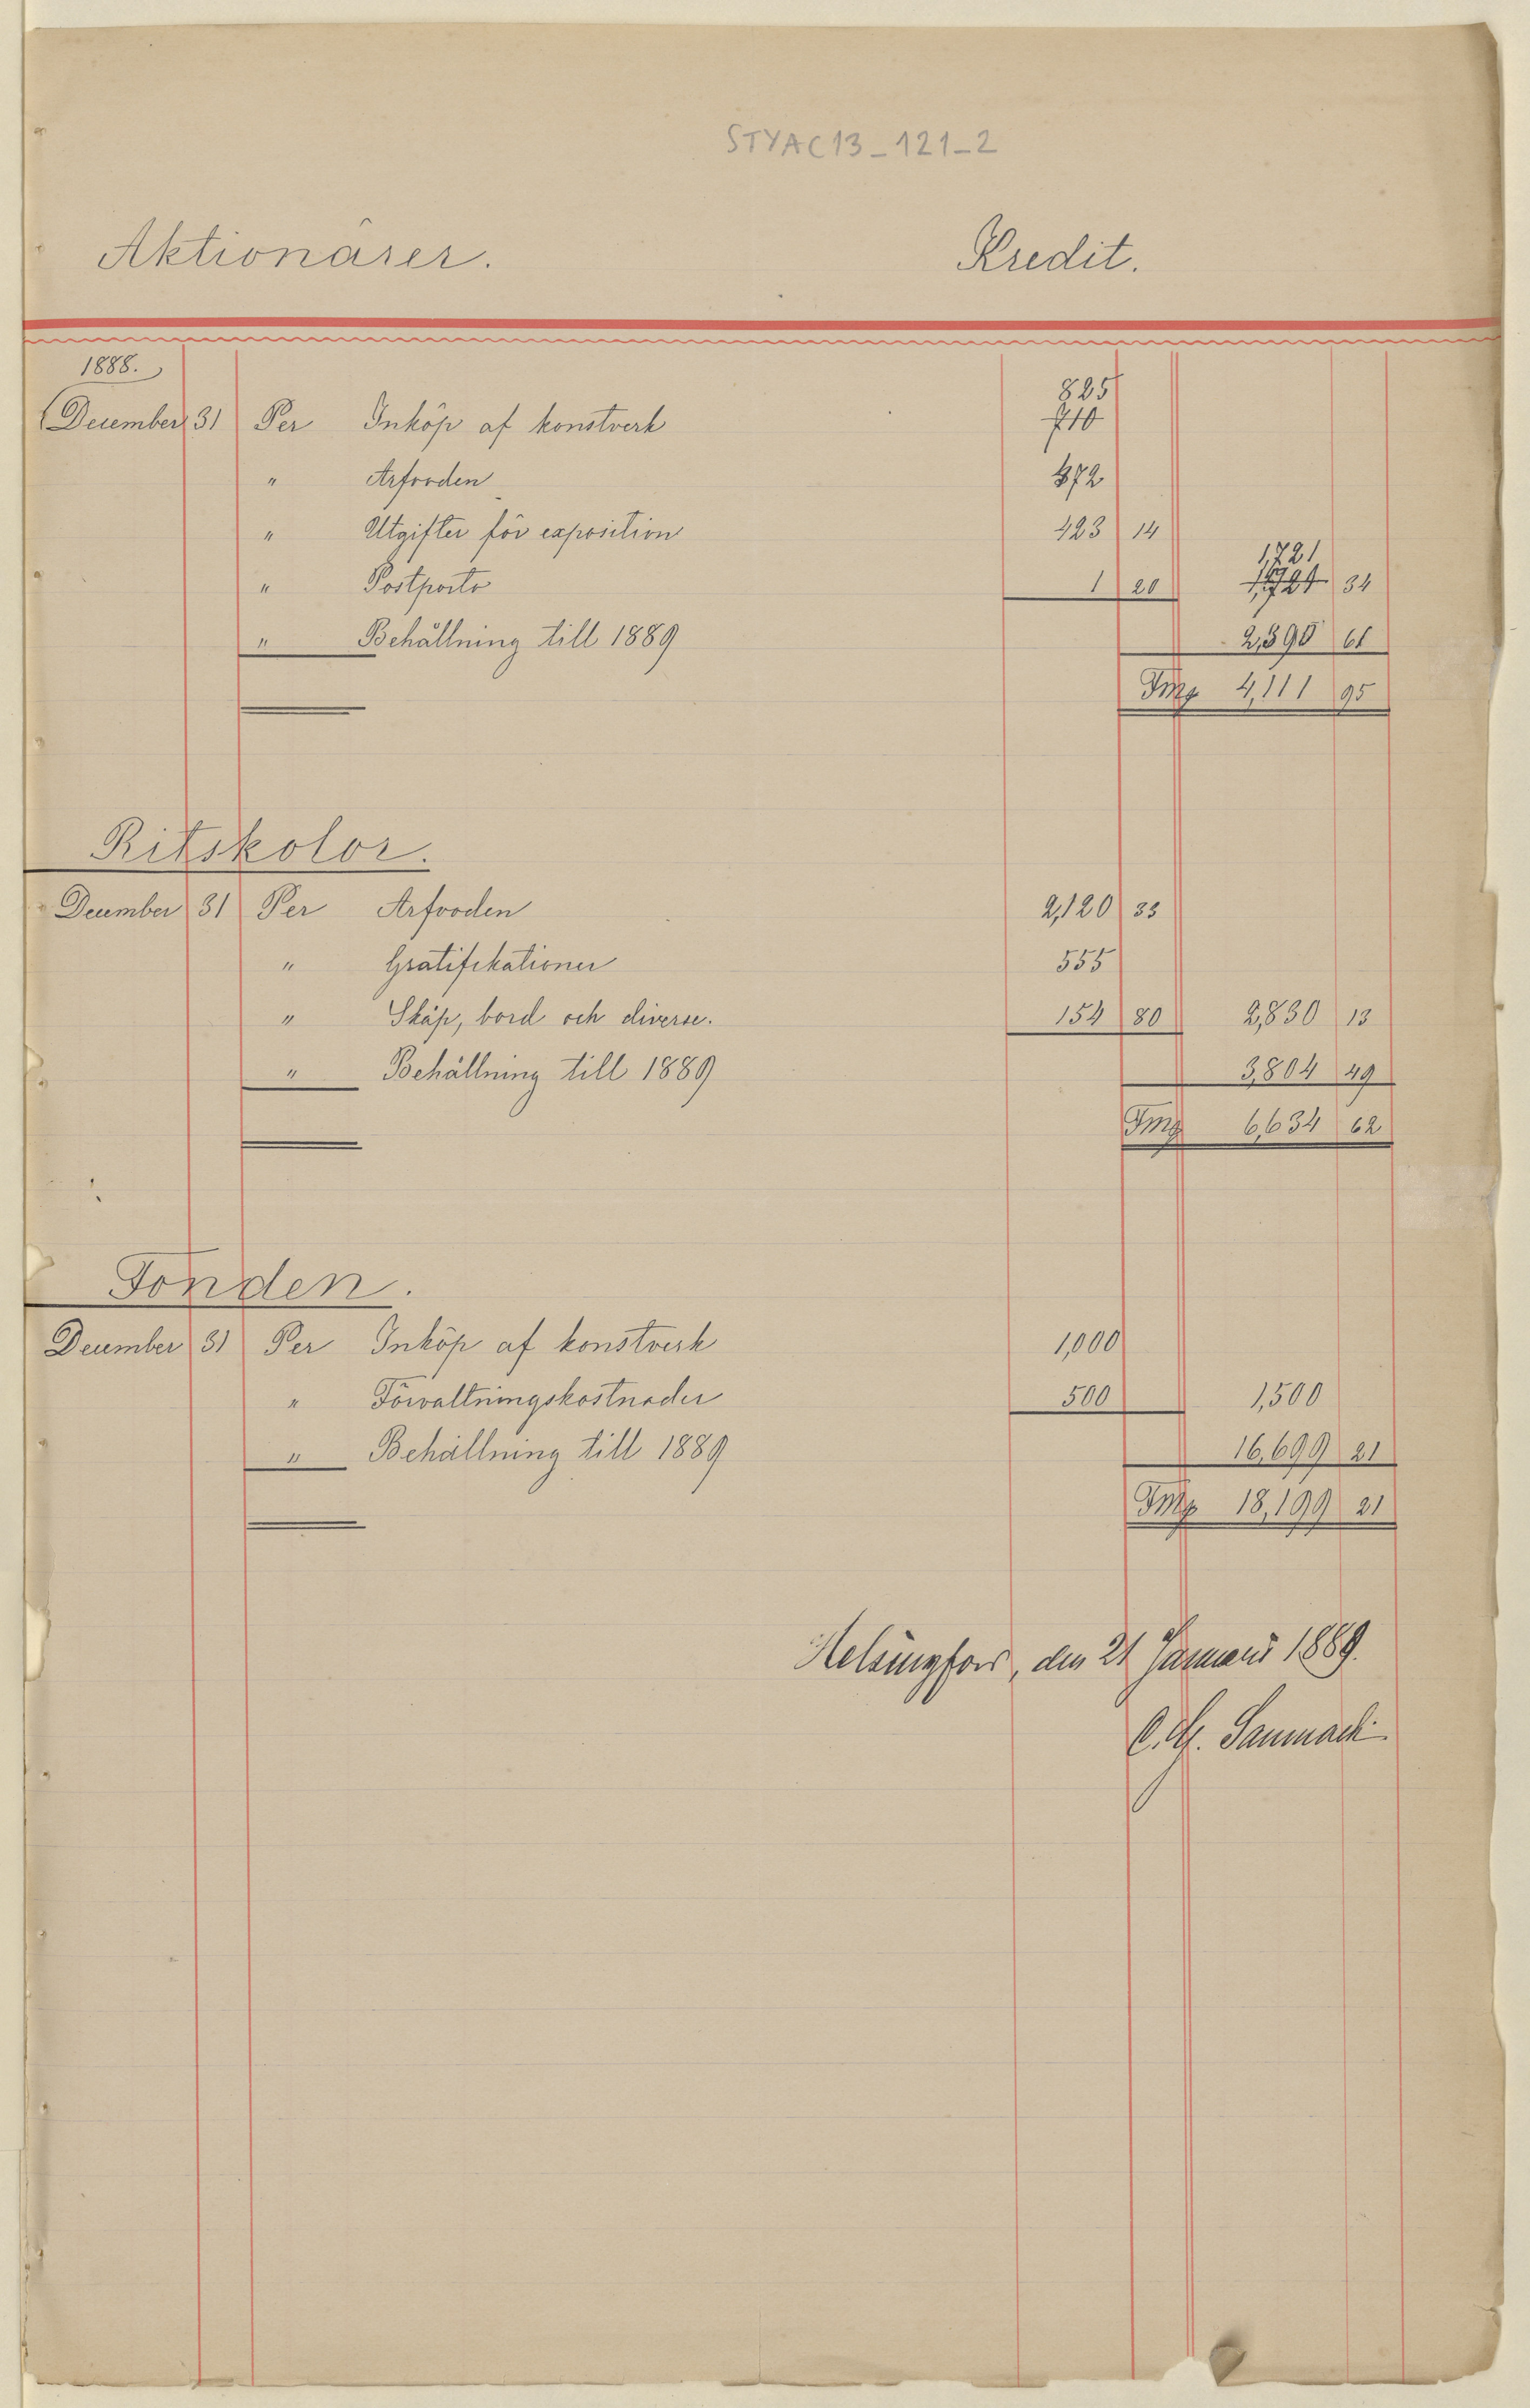 STYAC13_121_2
Aktionärer. Kredit.
1888.
825
December 31 Per Inköp af konstverk 710
" Arfvoden 472
" Utgifter för exposition 423 14
1,721
" Postporto 1 20 34
" Behållning till 1889 2,390 61
Fmg 4,111 95
Ritskolor.
December 31 Per Arfvoden 2,120 33
" Gratifikationer 555
" Skåp, bord och diverse. 154 80 2,830 13
" Behållning till 1889 3,804 49
Fmg 6,634 62
Fonden.
December 31 Per Inköp af konstverk 1,000
" Förvaltningskostnader 500 1,500
" Behållning till 1889 16,699 21
Fmg 18,199 21
Helsingfors, den 21 Januari 1889.
Sanmark